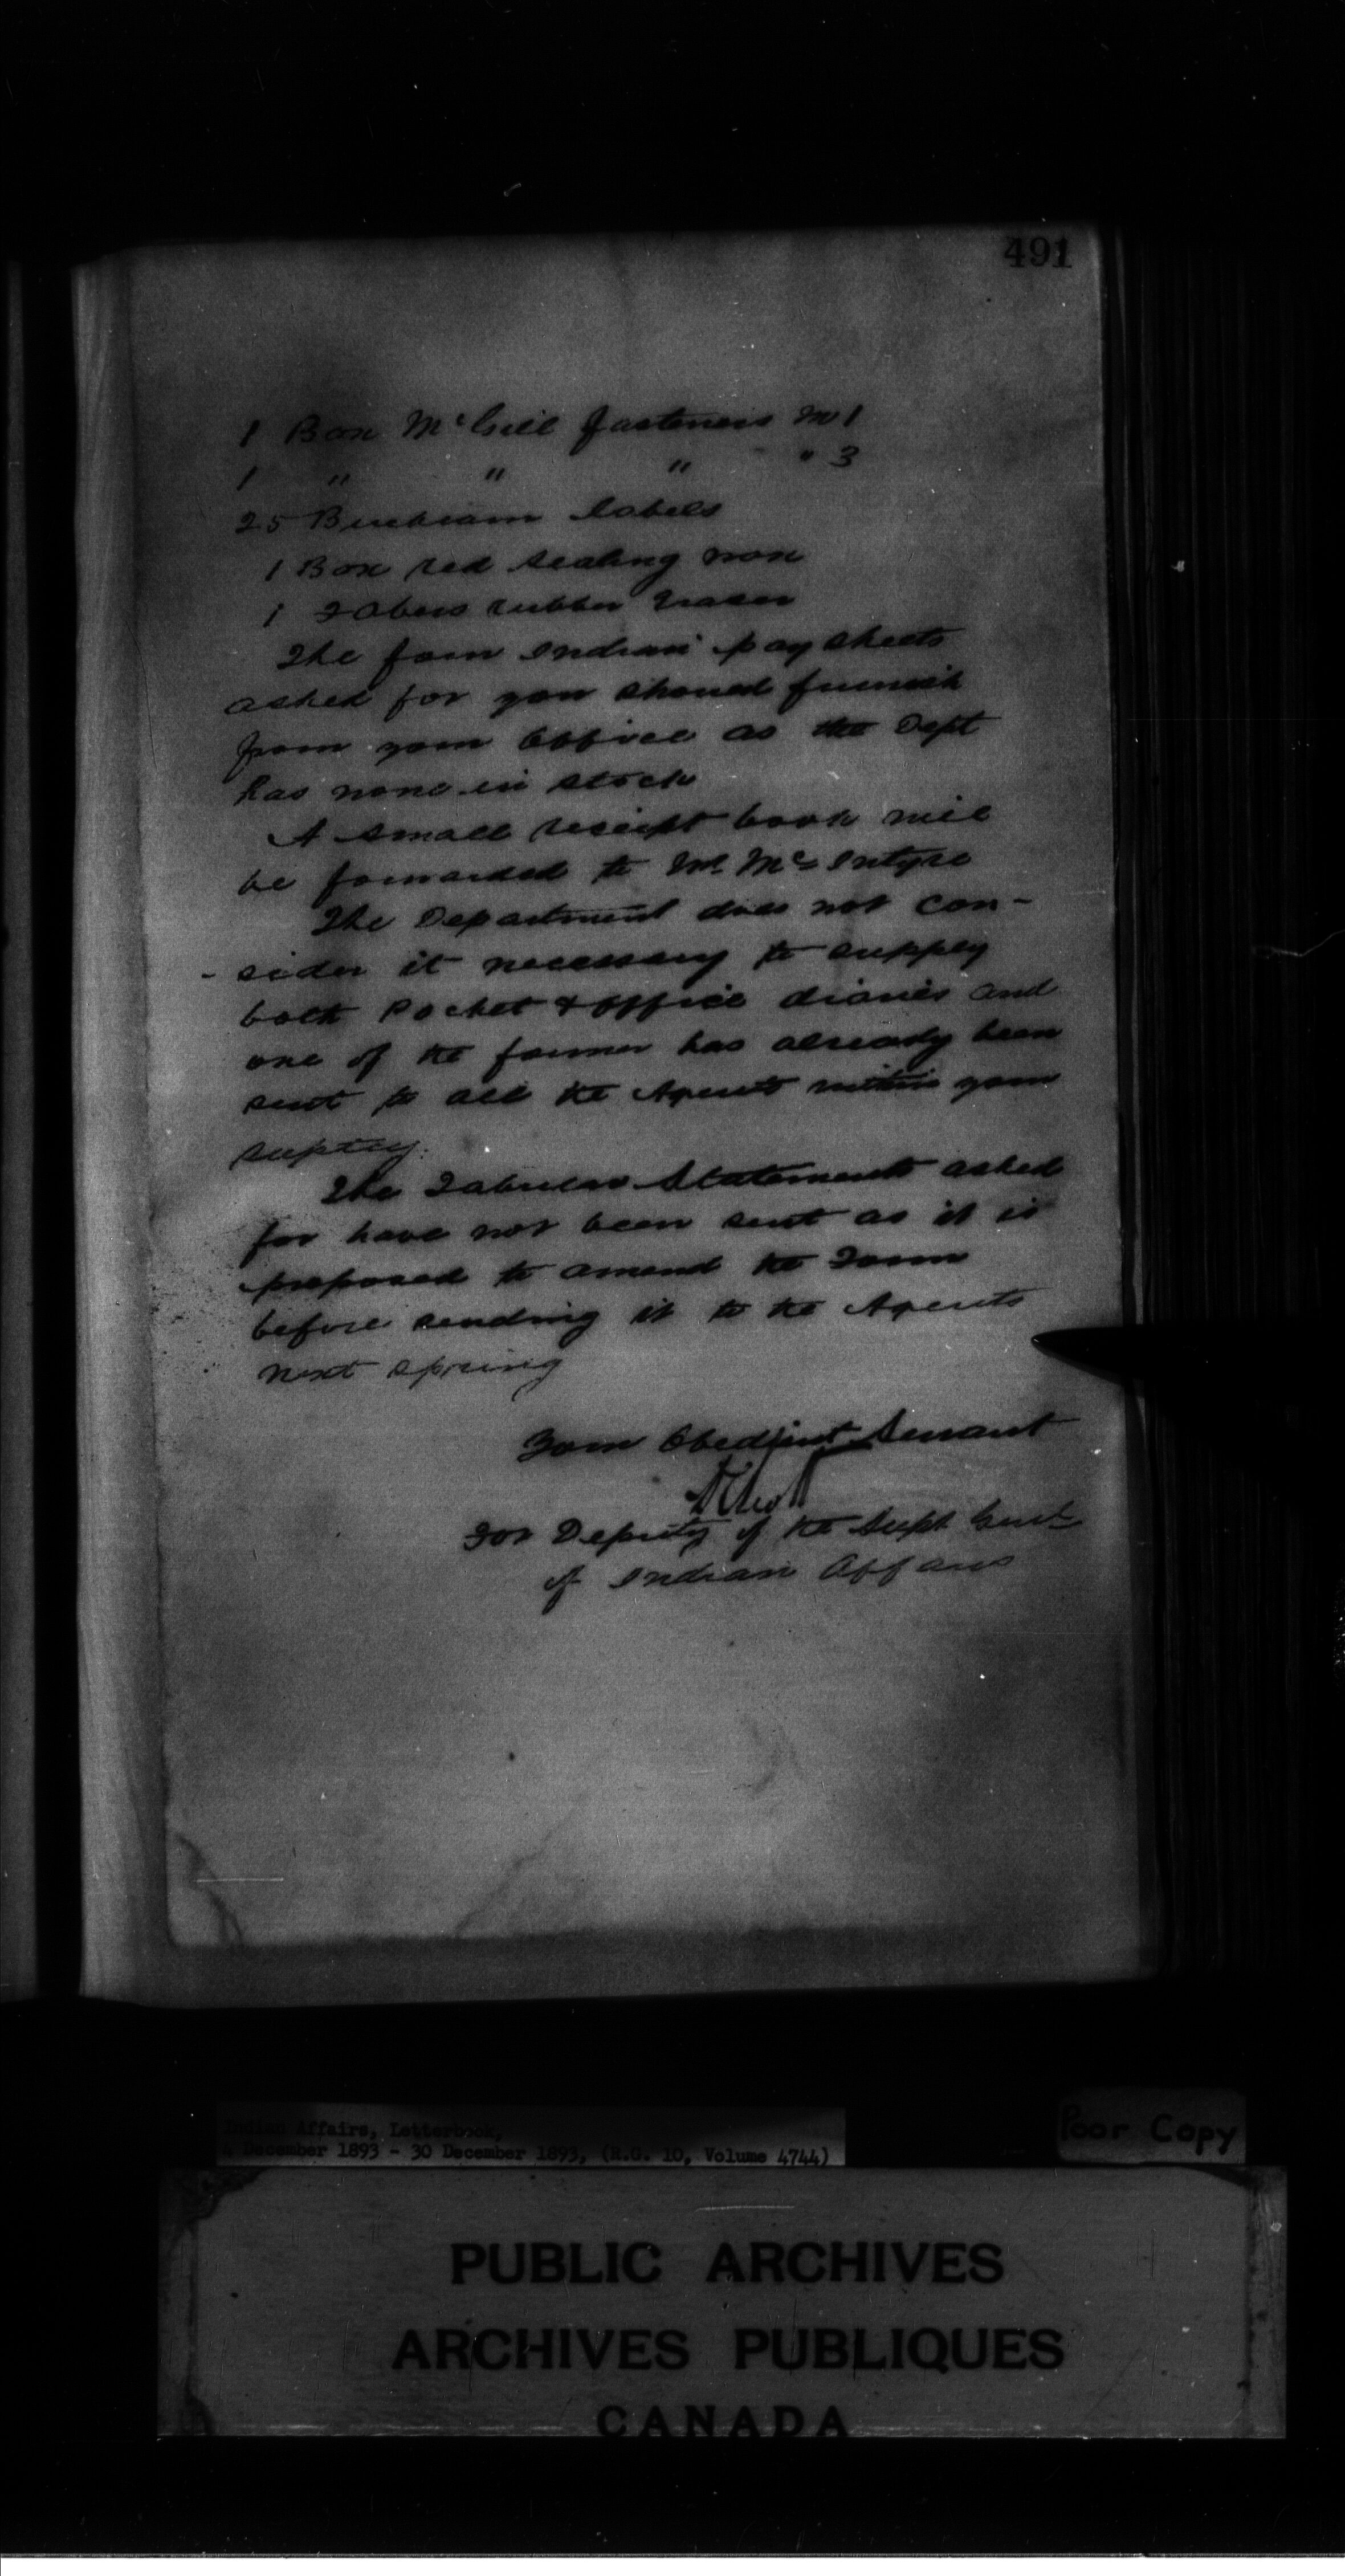 491
1 Box McGill fasteners No 1
1 " " " " 3
25 labels
1 Box red sealing wax
1 Fabers rubber Eraser
The form Indian pay sheets
asked for you should furnish
from your Office as the Dept
has none in stock
A small receipt book will
be forwarded to Mr. McIntyre
The Department does not con-
- sider it necessary to supply
both Pocket & Office diaries and
one of the former has already been
sent to all the Agents within your
suptcy.
The Tabular Statements asked
for have not been sent as it is
proposed to amend the Form
before sending it to the Agents
next spring
Your Obedient Servant
For Deputy of the Supt Genl
of Indian Affairs
Indian Affairs, Letterbook,
4 December 1893 - 30 December 1893, (R.G. 10, Volume 4744)
Poor Copy
PUBLIC ARCHIVES
ARCHIVES PUBLIQUES
CANADA